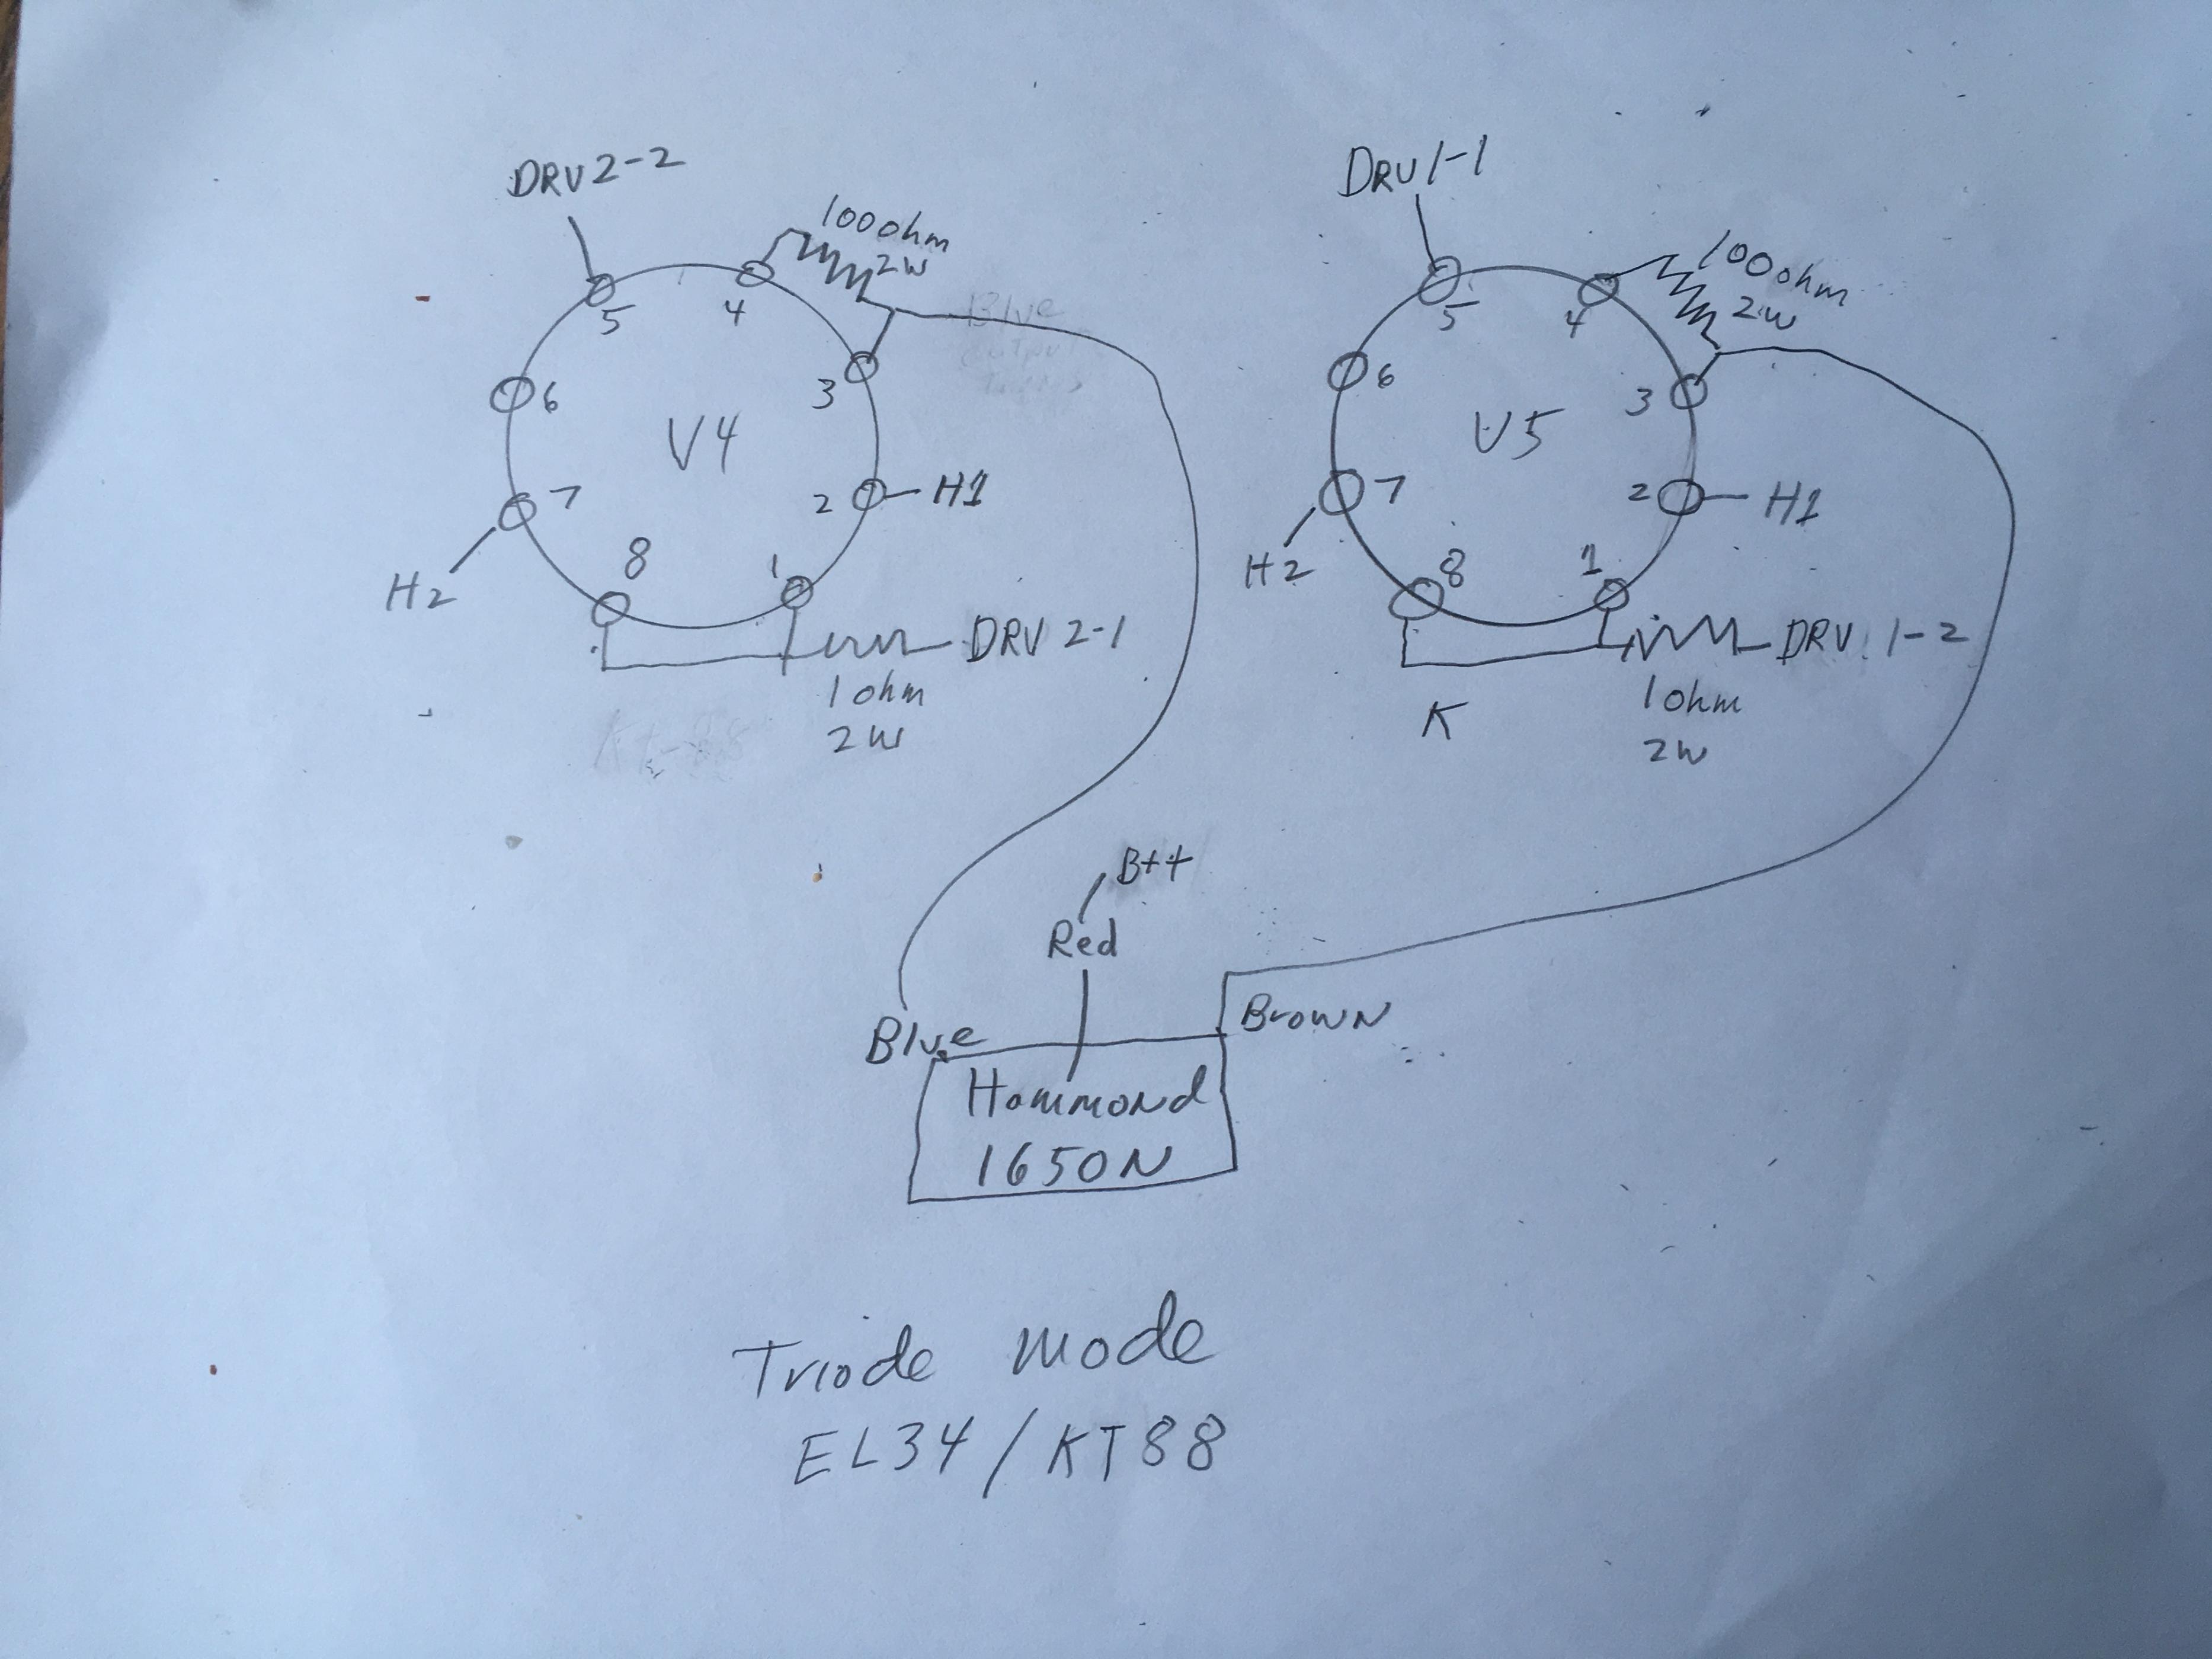 DRV2-2
DRV1-1
100ohm
2w
100ohm
2w
5
4
5
4
3
3
6
6
V4
V5
7
2
H1
7
2
H1
H2
8
1
H2
8
1
DRV 2-1
DRV 1-2
1ohm
2w
K
1ohm
2w
B++
Red
Blue
Brown
Hammond
1650N
Triode mode
EL34/KT88